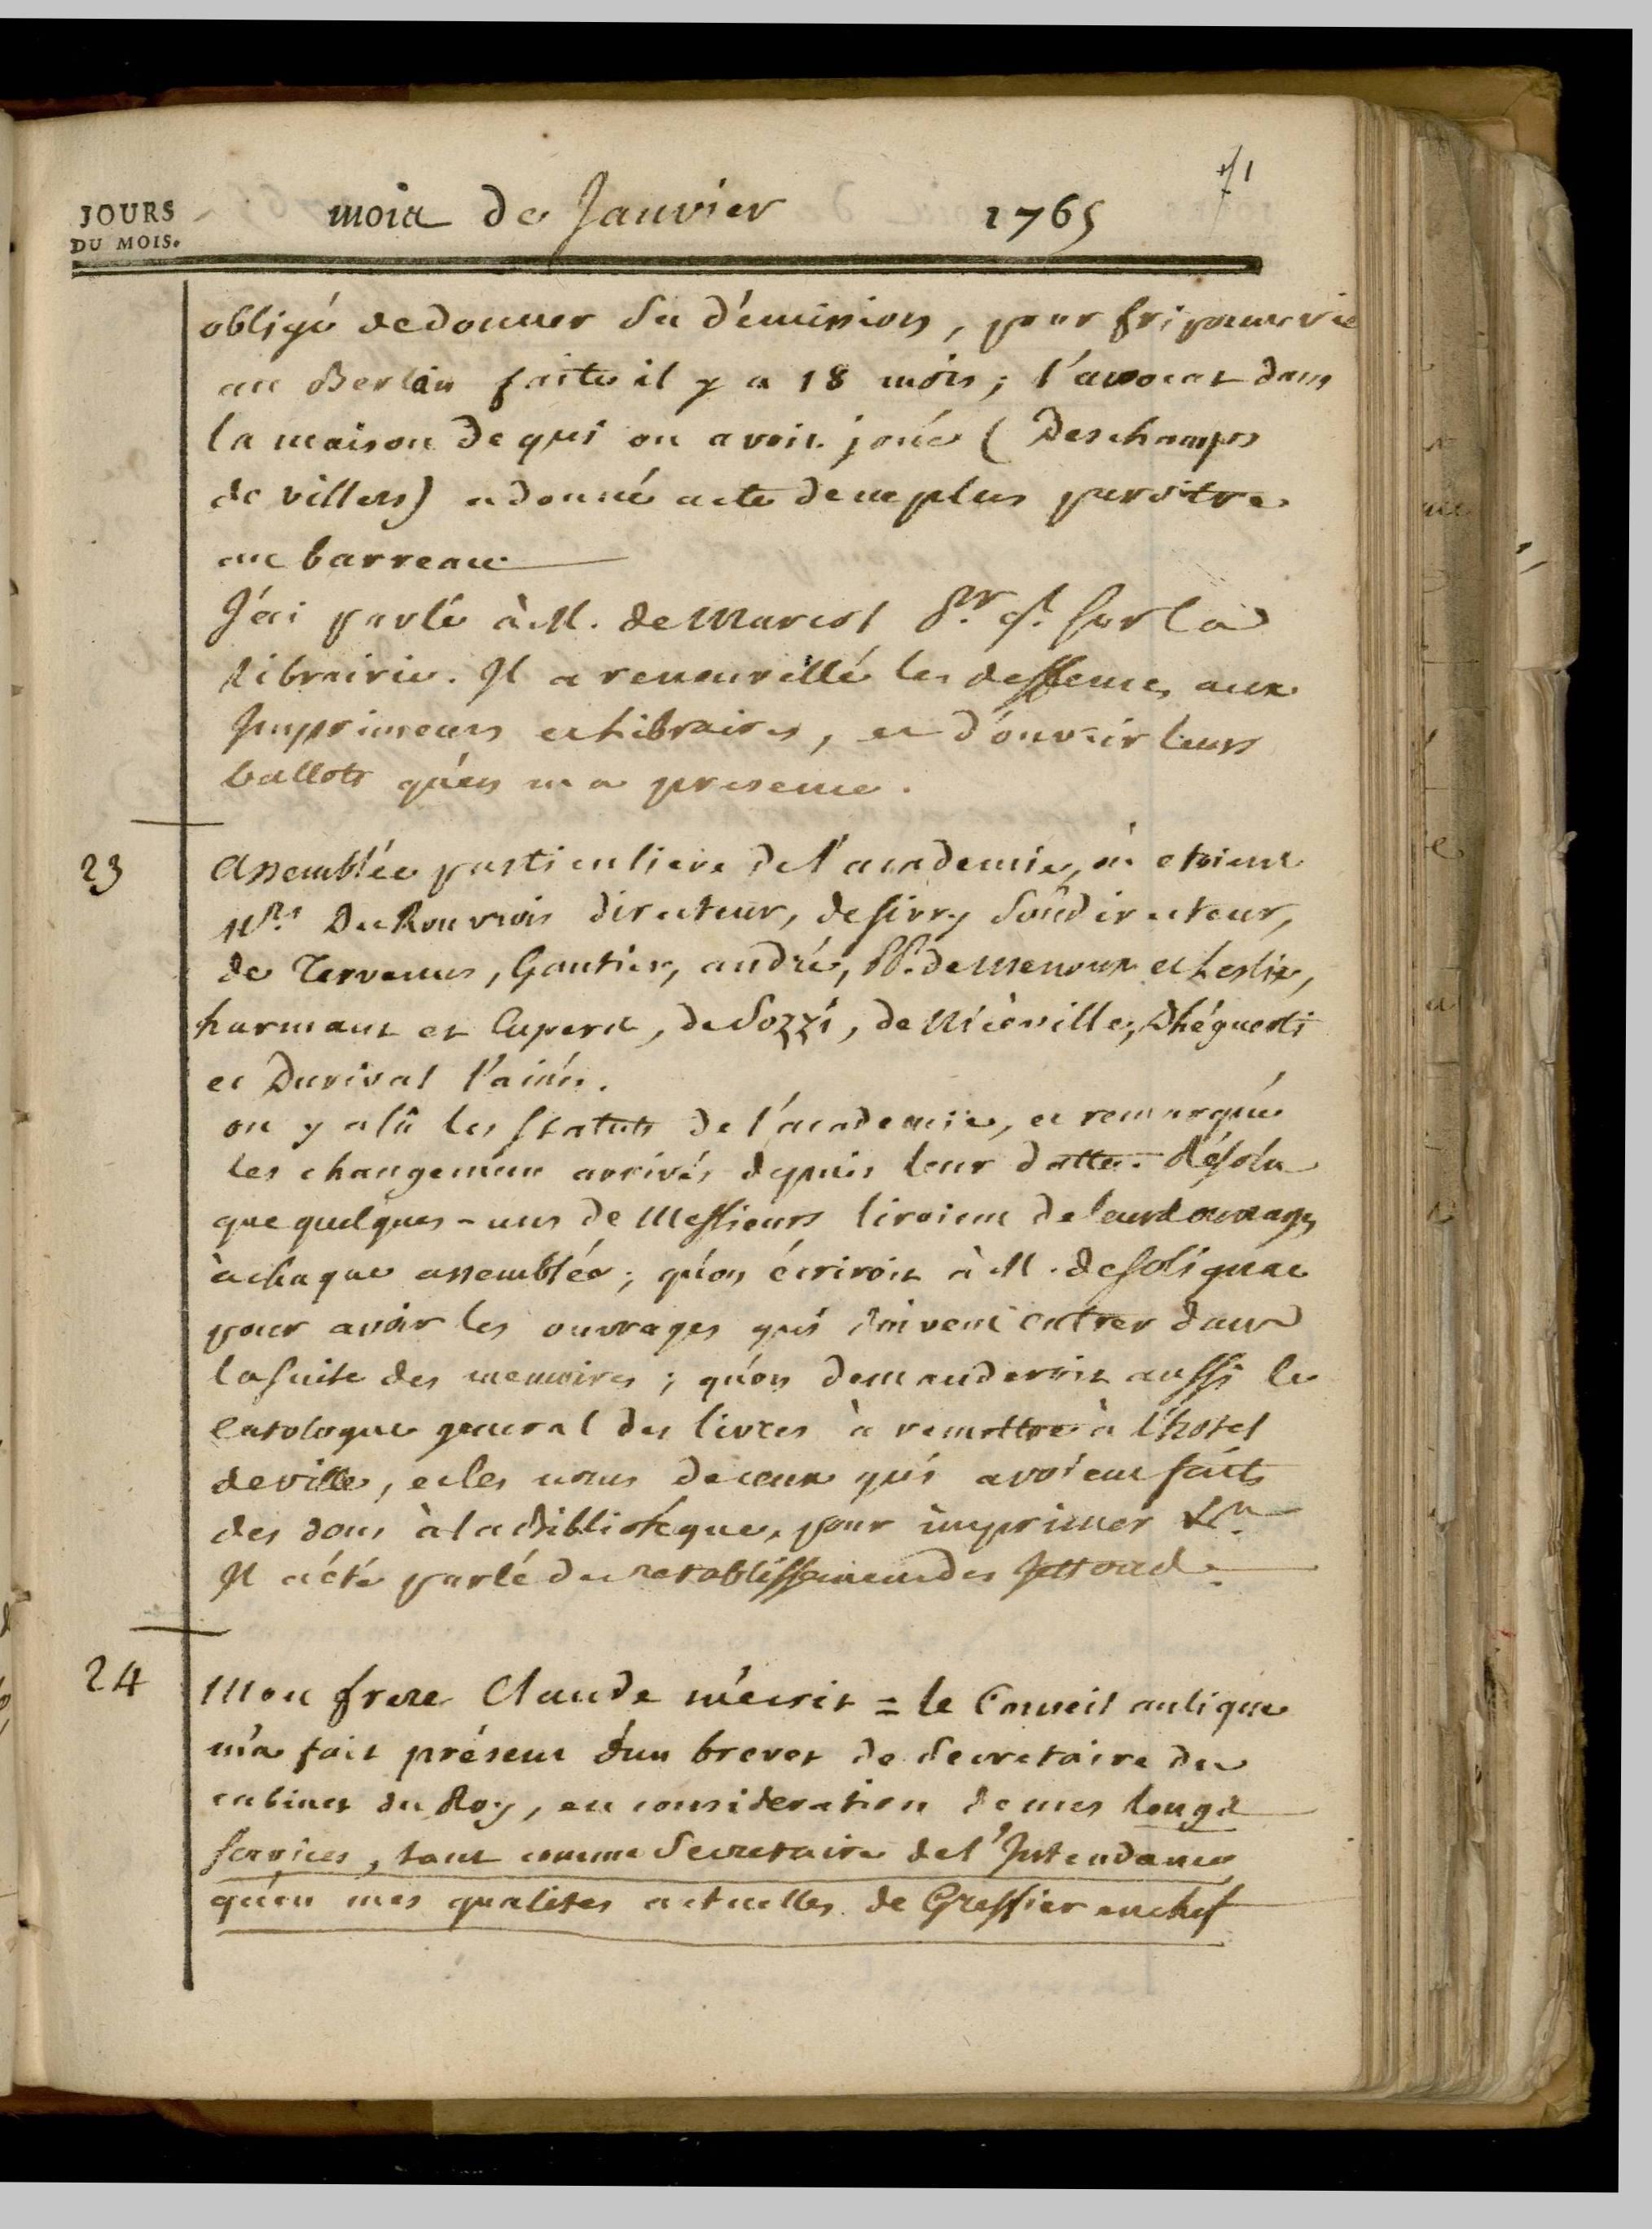 71
JOURS
DU MOIS.
mois de Janvier 1765
obligé de donner sa démission, pour friponnerie
au Berlan faite il y a 18 mois ; l'avocat dans
la maison de qui on avoit joué ( Deschamps
de villers) a donné acte de ne plus paroitre
au barreau
J'ai parlé à M. de Marcol Pr. Gl. sur la
librairie. Il a renouvellé les deffenses aux
Imprimeurs et Libraires, et d'ouvrir leurs
ballots qu'en ma presence.
23
Assemblée particuliere de l'academie, où etoient
Mrs. Du Rouvrois directeur, de Sivry Soûdirecteur,
de Tervenus, Gautier, andré, PP. de Menoux et Leslie,
harmant et Cupers, de Sozzi, de Nicéville, Dhéguerti
et Durival l'ainé.
on y a lû les statuts de l'academie, et remarqué
les changemens arrivés depuis leur datte. Résolu
que quelques-uns de Messieurs liroient de leurs ouvrages
à chaque assemblée ; qu'on écriroit à M. de Solignac
pour avoir les ouvrages qui doivent entrer dans
la suite des memoires ; qu'on demanderoit aussi le
Catologue general des livres à remettre à l'hotel
de ville, et les noms de ceux qui avoient faits
des dons à la Bibliotéque, pour imprimer
Il a été parlé du retablissement des Jettons.
24
Mon frere Claude m'écrit = le Conseil aulique
m'a fait présent d'un brevet de secretaire du
cabinet du Roy, en consideration de mes longs
services, tant comme Secretaire de l'Intendance
qu'en mes qualités actuelles de Greffier en chef